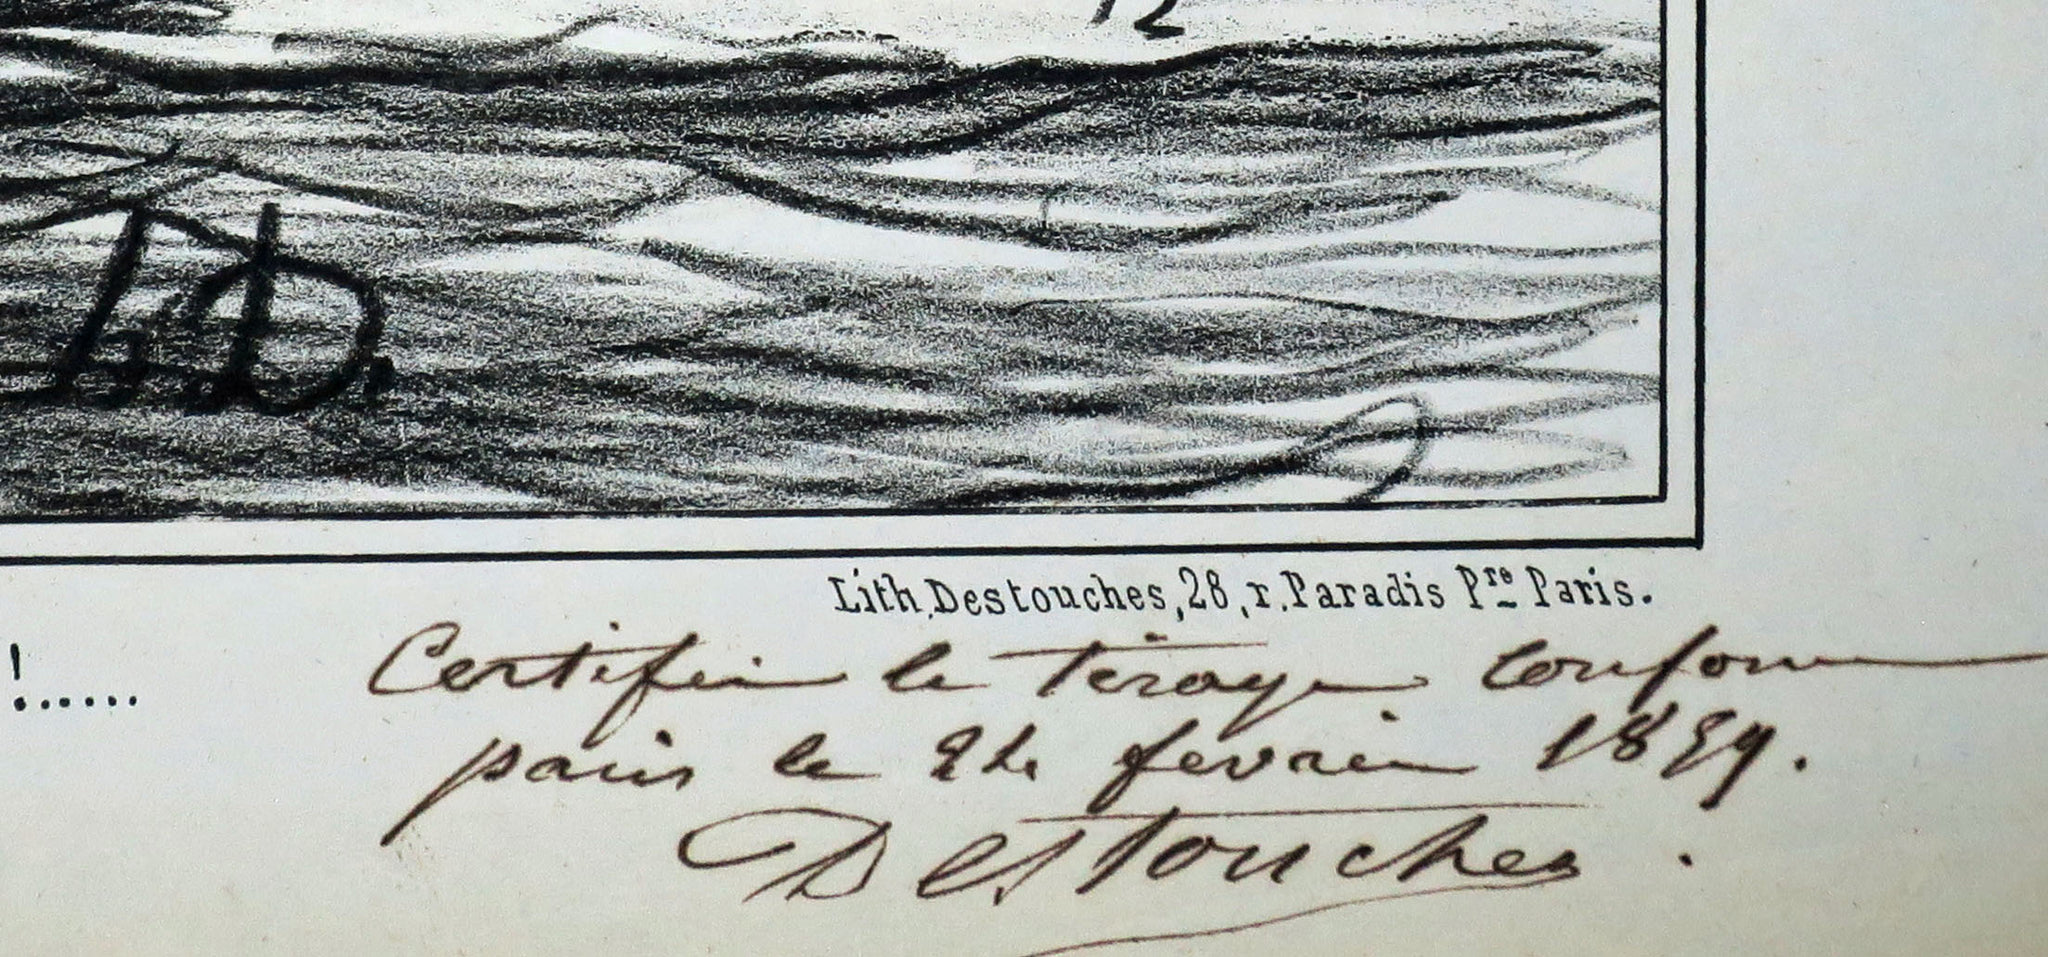 h.D.
Lith. Destouches, 28, r. Paradis Pre Paris.
!......
Certifié le tirage conforme
paris le 24 fevrier 1859.
Destouches.